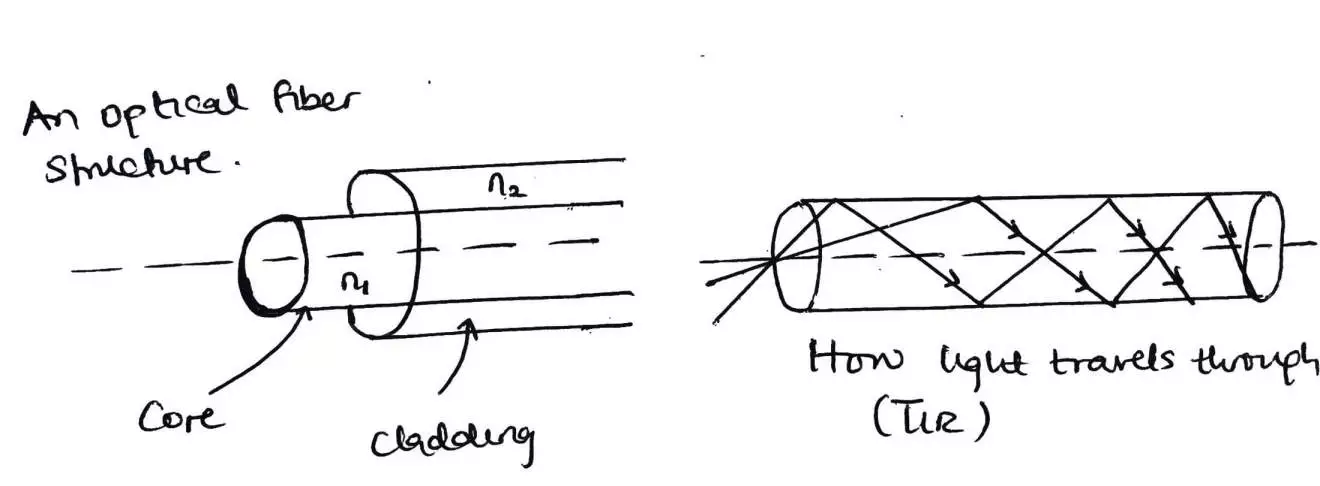 An optical fiber
structure.
n2
n1
Core
cladding
How light travels through
(TIR)